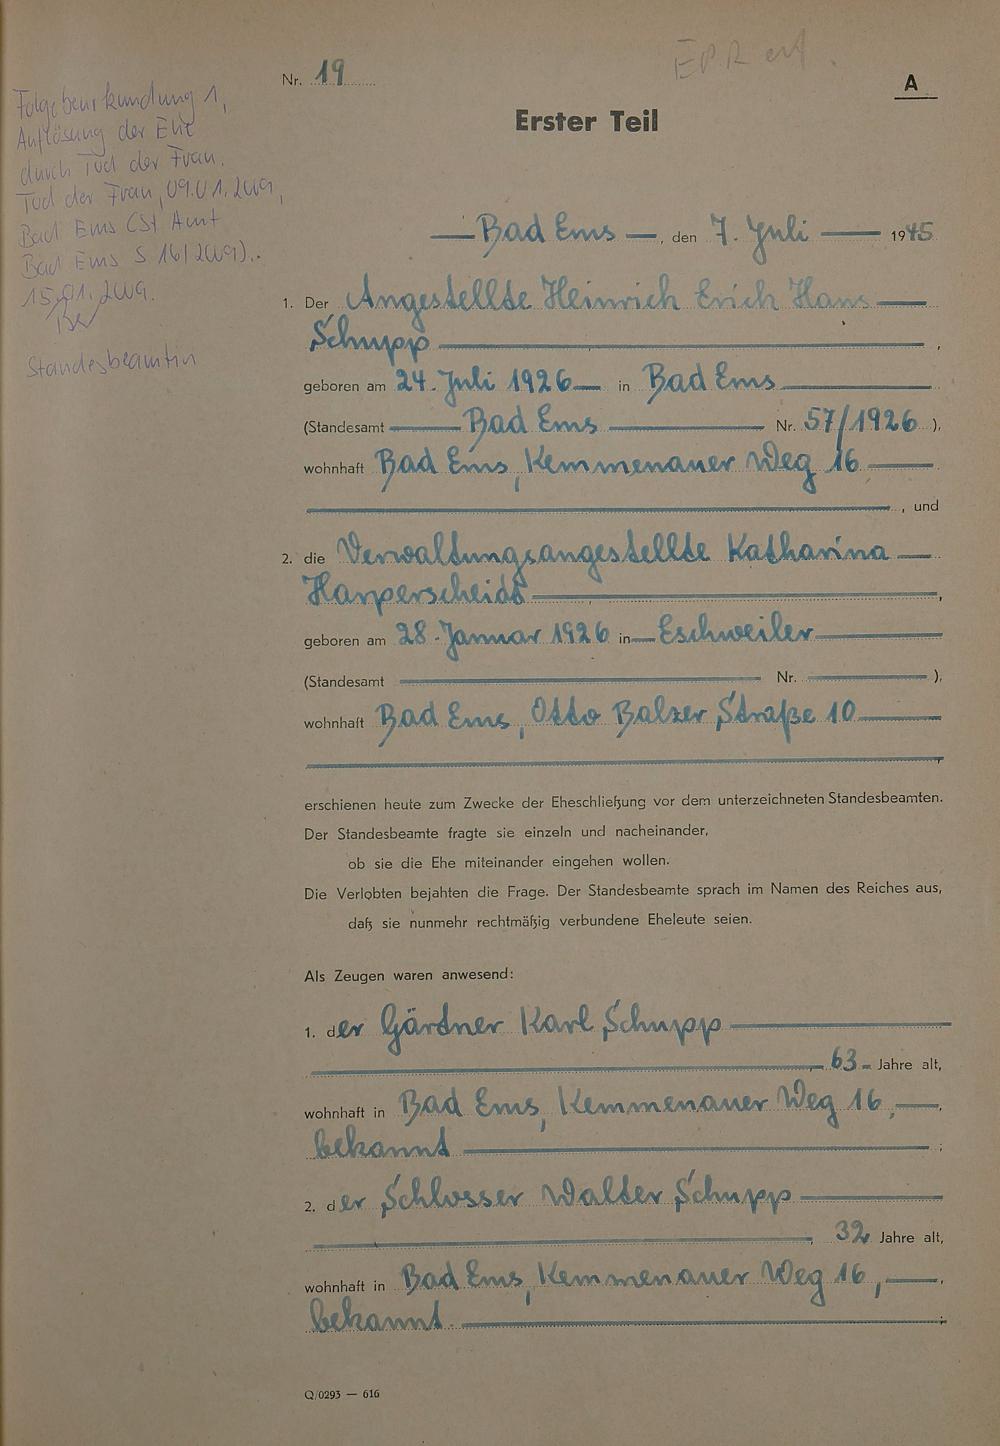 EPR erf.
Nr. 19
A
Erster Teil
Folgebeurkundung 1,
Auflösung der Ehe
durch Tod der Frau.
Tod der Frau, 09.01.2009,
Bad Ems (St Amt
Bad Ems S 16/2009).
15.01.2009.
Standesbeamtin
Bad Ems, den 7. Juli 1945
1. Der Angestellte Heinrich Erich Hans
Schupp,
geboren am 24. Juli 1926 in Bad Ems
(Standesamt Bad Ems Nr. 57/1926),
wohnhaft Bad Ems, Kemmenauer Weg 16
, und
2. die Verwaltungsangestellte Katharina
Harperscheidt,
geboren am 28. Januar 1926 in Eschweiler
(Standesamt Nr. ),
wohnhaft Bad Ems, Otto Balzer Straße 10
,
erschienen heute zum Zwecke der Eheschließung vor dem unterzeichneten Standesbeamten.
Der Standesbeamte fragte sie einzeln und nacheinander,
ob sie die Ehe miteinander eingehen wollen.
Die Verlobten bejahten die Frage. Der Standesbeamte sprach im Namen des Reiches aus,
daß sie nunmehr rechtmäßig verbundene Eheleute seien.
Als Zeugen waren anwesend:
1. der Gärdner Karl Schupp
, 63 Jahre alt,
wohnhaft in Bad Ems, Kemmenauer Weg 16,
bekannt ;
2. der Schlosser Walter Schupp
, 32 Jahre alt,
wohnhaft in Bad Ems, Kemmenauer Weg 16,
bekannt.
Q/0293 — 616